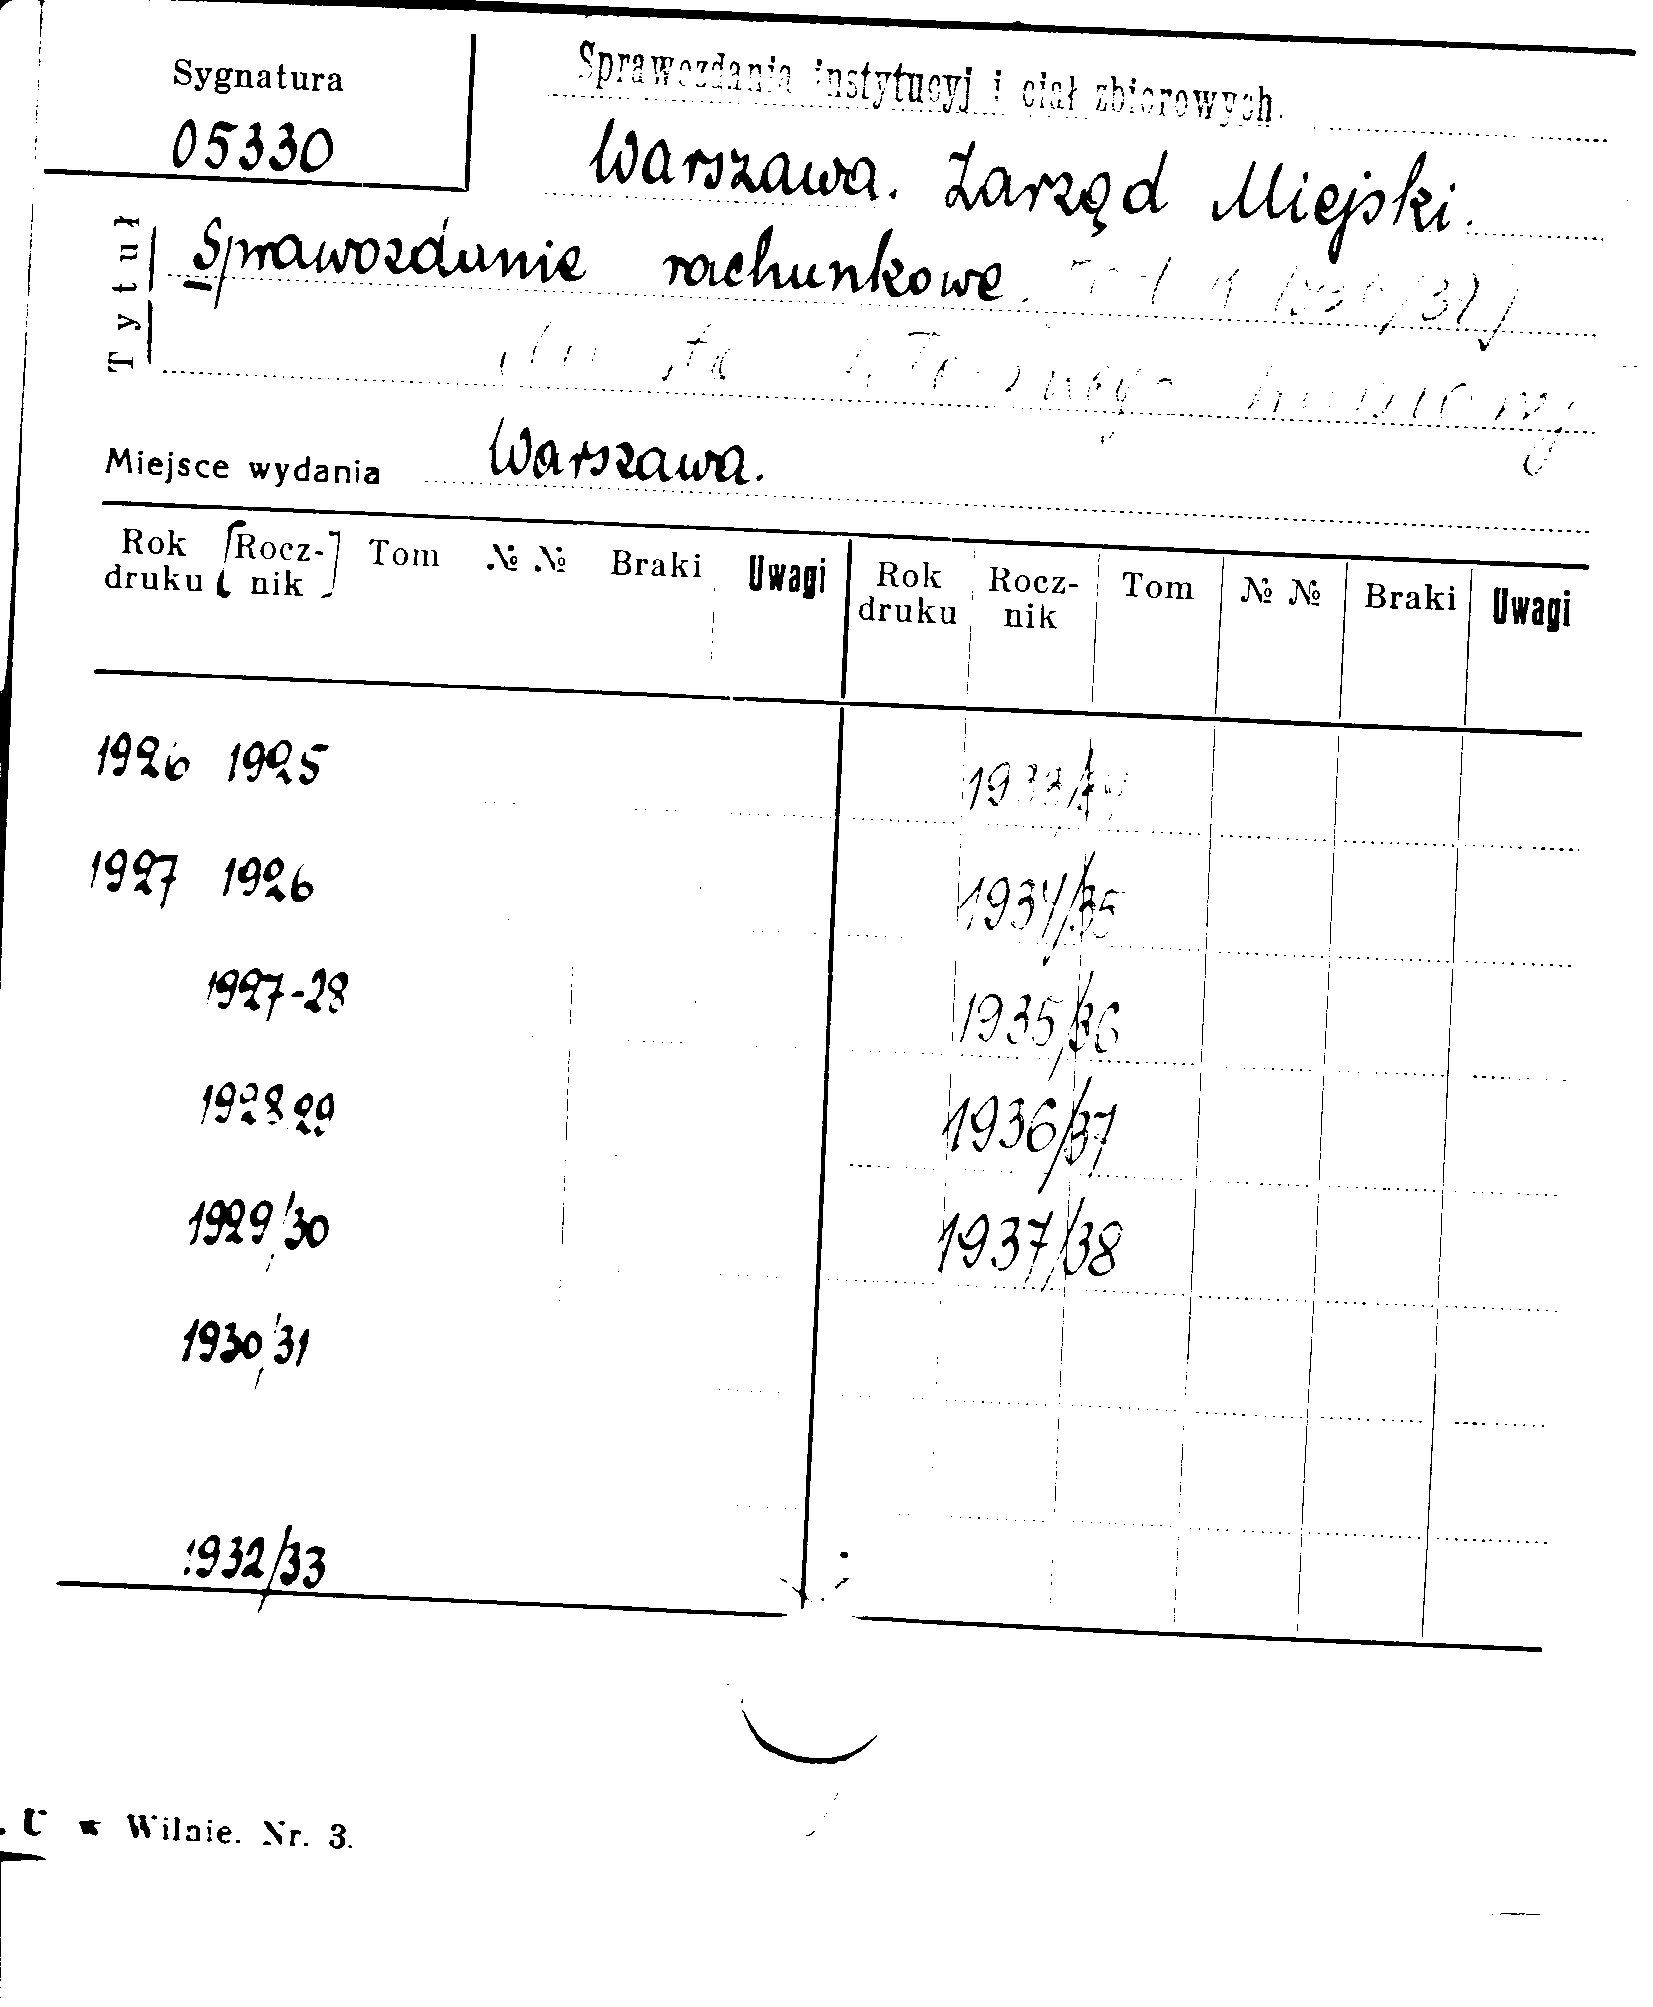 Sygnatura
05330
Sprawozdania instytucyj i ciał zbiorowych.
Warszawa. Zarząd Miejski.
Tytuł
Sprawozdanie rachunkowe.
Miejsce wydania Warszawa.
Rok druku Rocz-nik Tom № № Braki Uwagi Rok druku Rocz-nik Tom № № Braki Uwagi
1926 1925 1933/34
1927 1926 1934/35
1927-28 1935/36
1928 29 1936/37
1929/30 1937/38
1930/31
1932/33
Wilnie. Nr. 3.